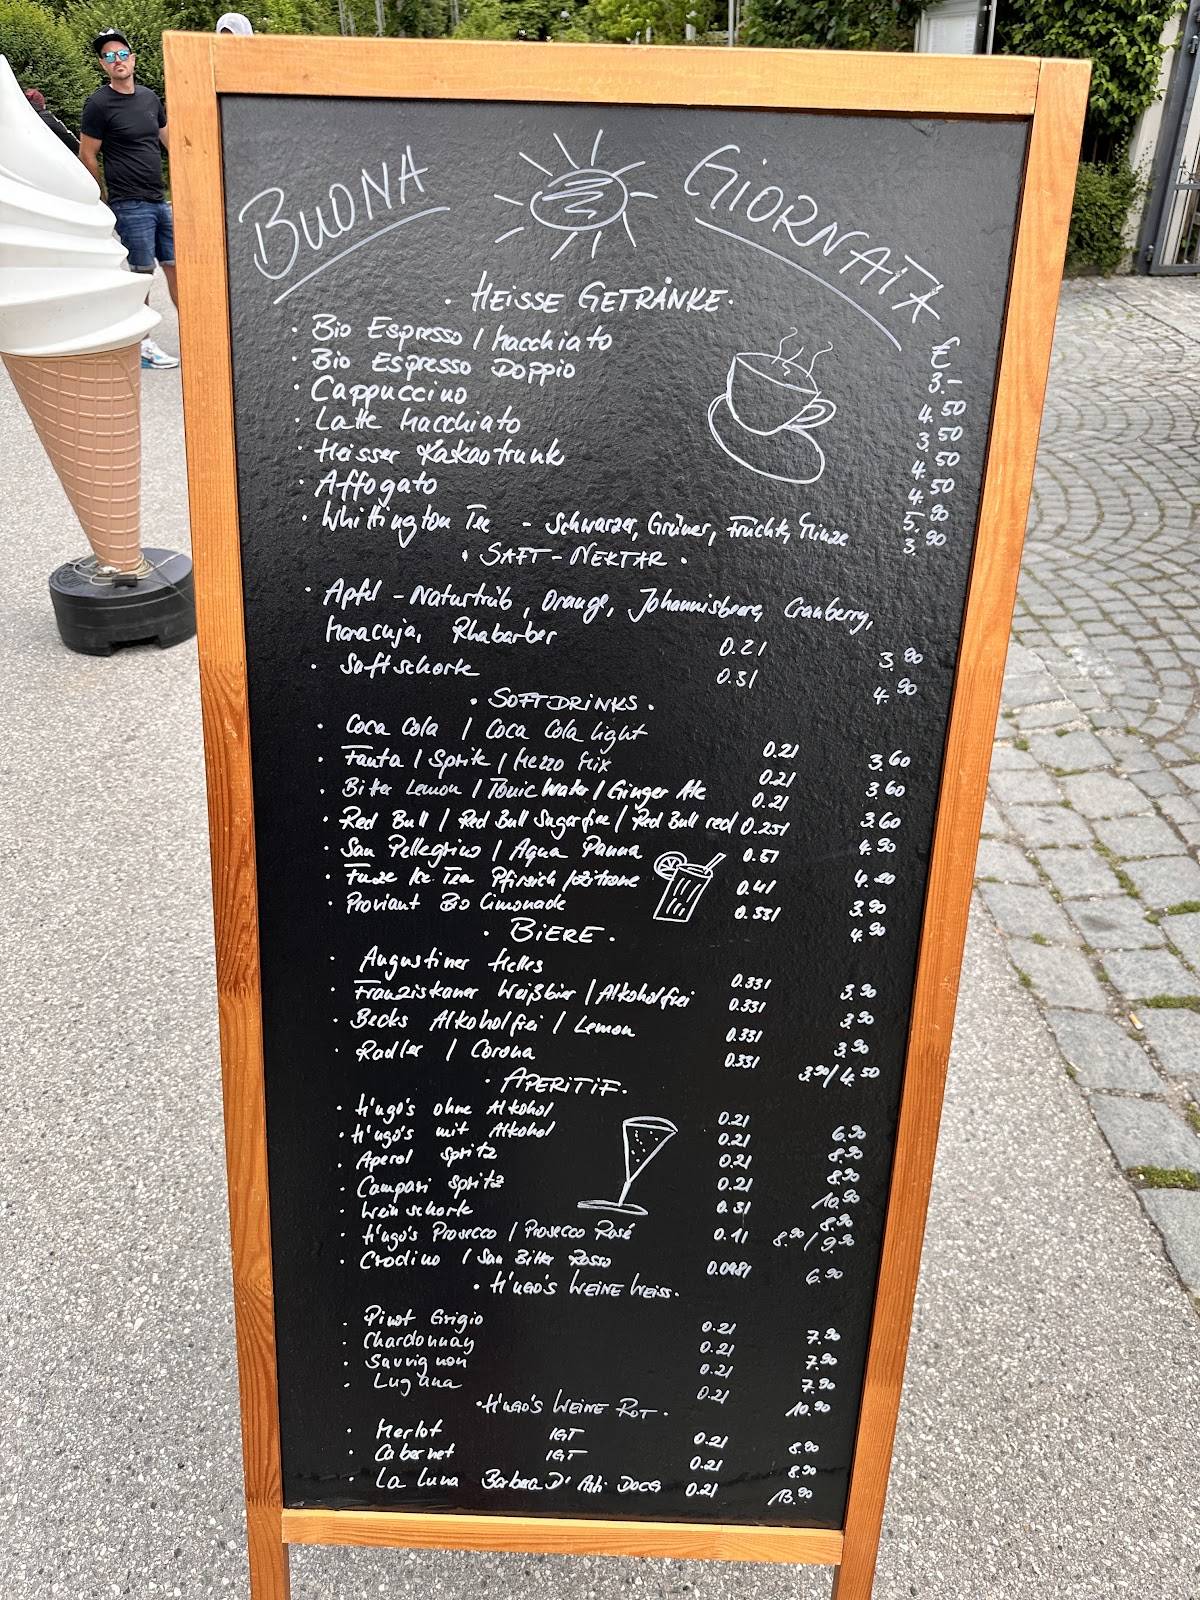 BUONA GIORNATA
· HEISSE GETRÄNKE ·
€
· Bio Espresso / Macchiato 3.-
· Bio Espresso Doppio 4.50
· Cappuccino 3.50
· Latte Macchiato 4.50
· Heisser Kakaotrunk 4.50
· Affogato 5.90
· Whittington Tee - Schwarzer, Grüner, Früchte, Minze 3.90
· SAFT - NEKTAR ·
· Apfel - Naturtrüb, Orange, Johannisbeere, Cranberry,
Maracuja, Rhabarber 0.2l 3.90
· Saftschorle 0.3l 4.90
· SOFTDRINKS ·
· Coca Cola / Coca Cola light 0.2l 3.60
· Fanta / Sprite / Mezzo Mix 0.2l 3.60
· Bitter Lemon / Tonic Water / Ginger Ale 0.2l 3.60
· Red Bull / Red Bull Sugarfree / Red Bull red 0.25l 4.90
· San Pellegrino / Aqua Panna 0.5l 4.20
· Fuze Ice Tea Pfirsich / Zitrone 0.4l 3.90
· Proviant Bio Limonade 0.33l 4.90
· BIERE ·
· Augustiner Helles 0.33l 3.90
· Franziskaner Weißbier / Alkoholfrei 0.33l 3.90
· Becks Alkoholfrei / Lemon 0.33l 3.90
· Radler / Corona 0.33l 3.90/4.50
· APERITIF ·
· H'ugo's ohne Alkohol 0.2l 6.90
· H'ugo's mit Alkohol 0.2l 8.90
· Aperol Spritz 0.2l 8.90
· Campari Spritz 0.2l 10.90
· Weinschorle 0.3l 8.90
· H'ugo's Prosecco / Prosecco Rosé 0.1l 8.90 / 9.90
· Crodino / San Bitter Rosso 0.098l 6.90
· H'UGO'S WEINE WEISS ·
· Pinot Grigio 0.2l 7.90
· Chardonnay 0.2l 7.90
· Sauvignon 0.2l 7.90
· Lugana 0.2l 10.90
· H'UGO'S WEINE ROT ·
· Merlot IGT 0.2l 8.90
· Cabernet IGT 0.2l 8.90
· La Luna Barbera D' Asti DOCG 0.2l 13.90